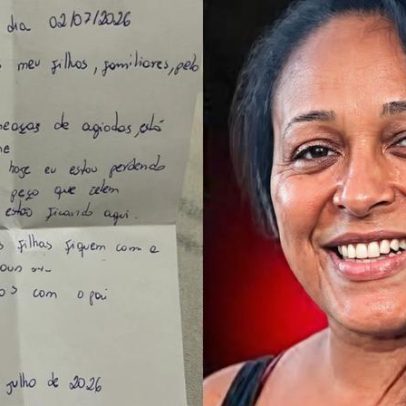 dia 02/07/2026
meu filhos, familiares, pelo
de agiotas, está
hoje eu estou perdendo
peço que zelem
estão ficando aqui.
filhas fiquem com a
com o pai
julho de 2026